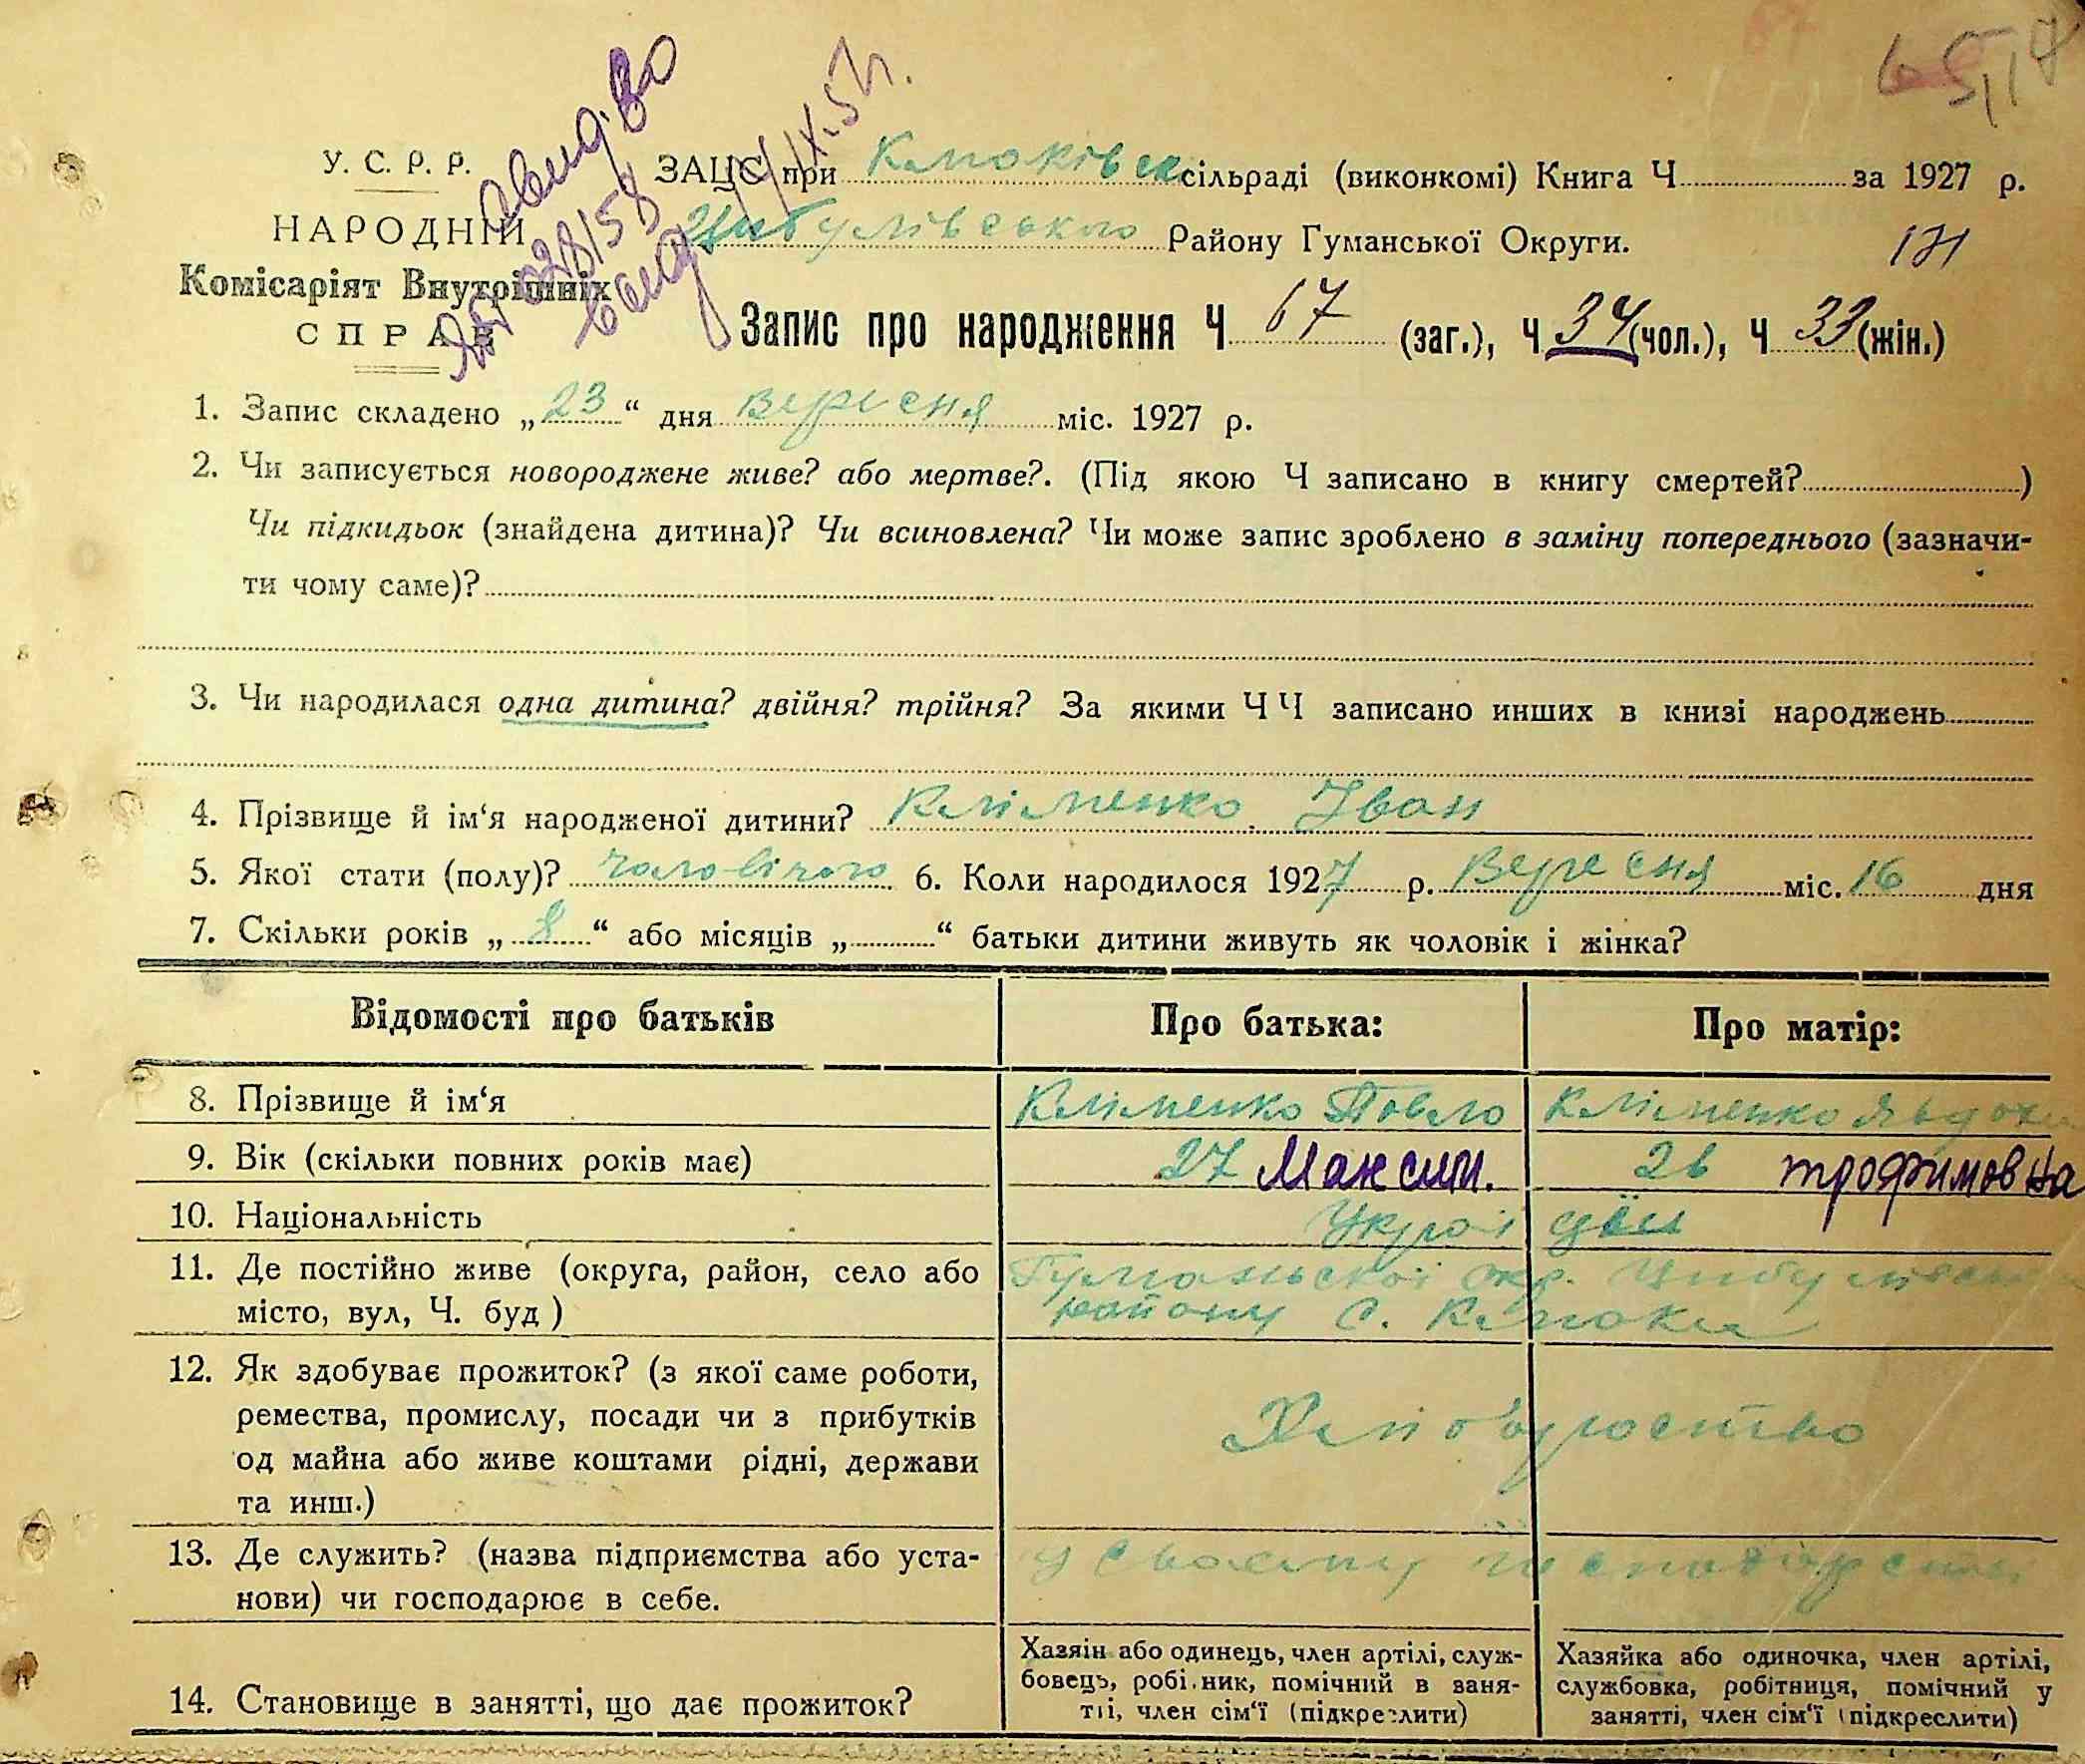 6 5/17
У. С. Р. Р.
НАРОДНІЙ
Комісаріят Внутрішніх
СПРАВ
ЗАЦС при Клюківск сільраді (виконкомі) Книга Ч за 1927 р.
Цибулівського Району Гуманської Округи.
Запис про народження Ч 67 (заг.), Ч 34 (чол.), Ч 33 (жін.)
1. Запис складено „23“ дня Вересня міс. 1927 р.
2. Чи записується новороджене живе? або мертве?. (Під якою Ч записано в книгу смертей? )
Чи підкидьок (знайдена дитина)? Чи всиновлена? Чи може запис зроблено в заміну попереднього (зазначи-
ти чому саме)?
3. Чи народилася одна дитина? двійня? трійня? За якими Ч Ч записано инших в книзі народжень
4. Прізвище й ім‘я народженої дитини? Кліменко Іван
5. Якої стати (полу)? чоловічого 6. Коли народилося 1927 р. Вересня міс. 16 дня
7. Скільки років „8“ або місяців „ “ батьки дитини живуть як чоловік і жінка?
Відомості про батьків Про батька: Про матір:
8. Прізвище й ім‘я Кліменко Павло Кліменко Явдоха
9. Вік (скільки повних років має) 27 Максим. 26 трофимовна
10. Національність
11. Де постійно живе (округа, район, село або Гуманьської окр. Цибулівськ
місто, вул, Ч. буд ) району С. Клюки
12. Як здобуває прожиток? (з якої саме роботи,
ремества, промислу, посади чи з прибутків Хліборобство
од майна або живе коштами рідні, держави
та инш.)
13. Де служить? (назва підприємства або уста- у своєму господарстві
нови) чи господарює в себе.
14. Становище в занятті, що дає прожиток?
Хазяін або одинець, член артілі, служ-
бовець, робі.ник, помічний в заня-
тті, член сім‘ї (підкреслити)
Хазяйка або одиночка, член артілі,
службовка, робітниця, помічний у
занятті, член сім‘ї (підкреслити)